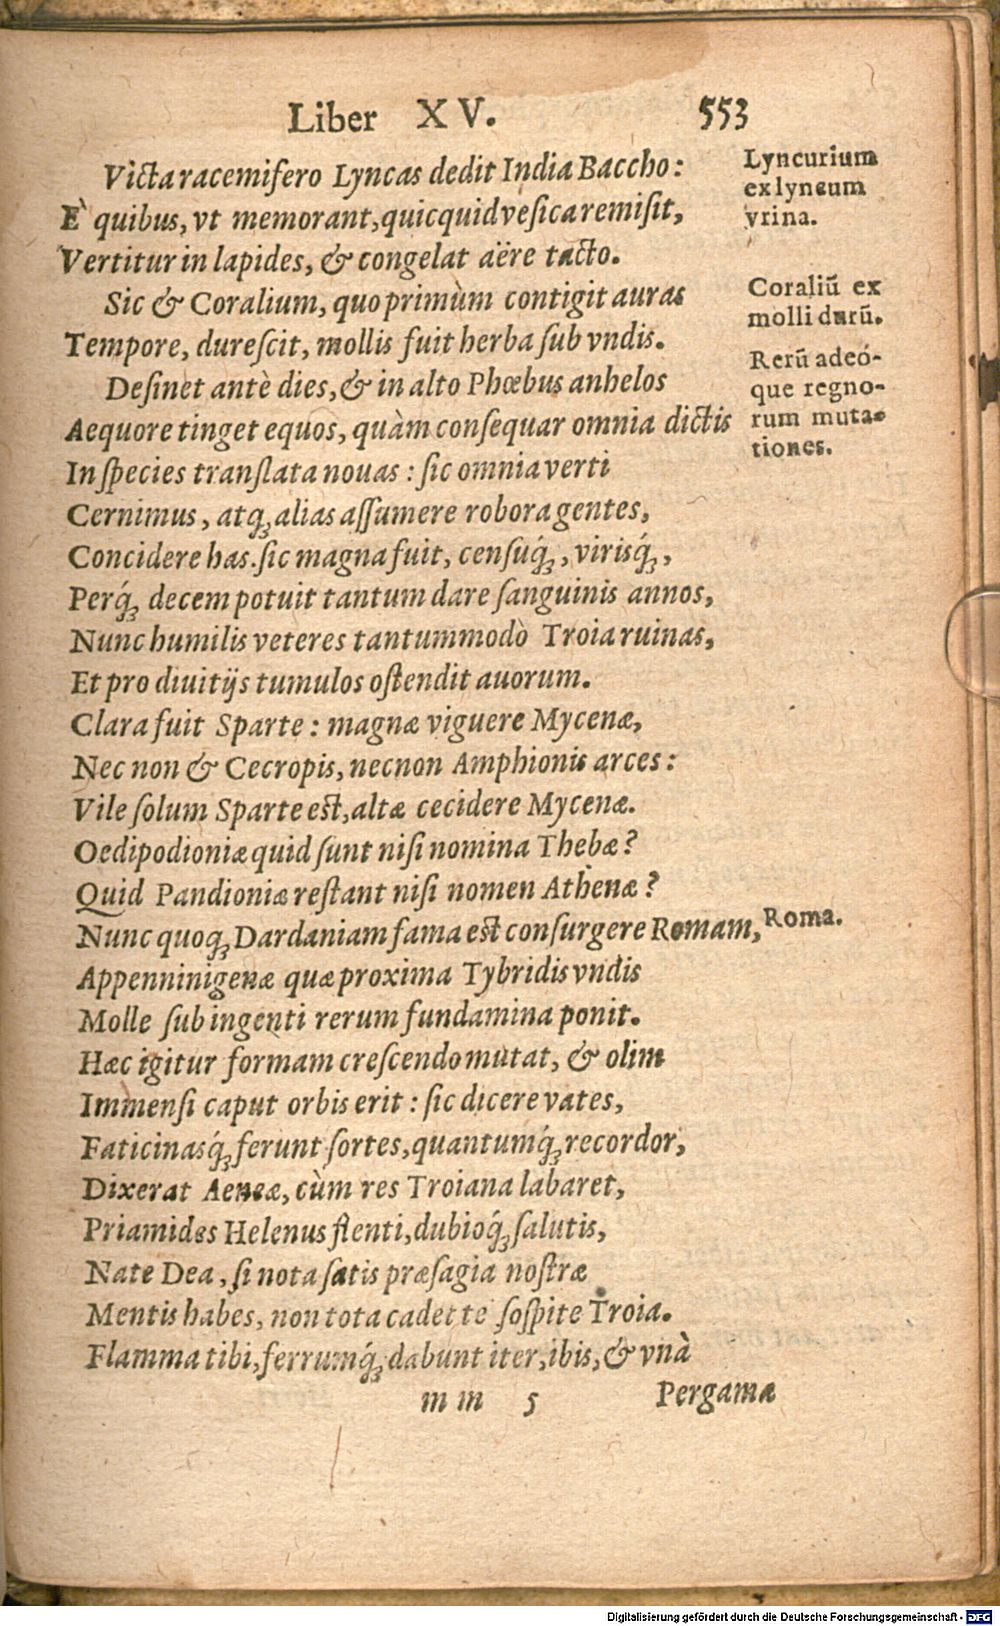 Liber XV. 553
Victa racemifero Lyncas dedit India Baccho:
È quibus, vt memorant, quicquid veſica remiſit,
Vertitur in lapides, & congelat aëre tacto.
Sic & Coralium, quo primùm contigit auras
Tempore, dureſcit, mollis fuit herba ſub vndis.
Deſinet antè dies, & in alto Phœbus anhelos
Aequore tinget equos, quàm conſequar omnia dictis
In ſpecies tranſlata nouas: ſic omnia verti
Cernimus, atq; alias aſſumere robora gentes,
Concidere has. ſic magna fuit, cenſuq́;, virisq́;,
Perq́; decem potuit tantum dare ſanguinis annos,
Nunc humilis veteres tantummodò Troia ruinas,
Et pro diuitijs tumulos oſtendit auorum.
Clara fuit Sparte: magnæ viguere Mycenæ,
Nec non & Cecropis, necnon Amphionis arces:
Vile ſolum Sparte eſt, altæ cecidere Mycenæ.
Oedipodioniæ quid ſunt niſi nomina Thebæ?
Quid Pandioniæ reſtant niſi nomen Athenæ?
Nunc quoq; Dardaniam fama eſt conſurgere Romam,
Appenninigenæ quæ proxima Tybridis vndis
Molle ſub ingenti rerum fundamina ponit.
Hæc igitur formam creſcendo mutat, & olim
Immenſi caput orbis erit: ſic dicere vates,
Faticinasq́; ferunt ſortes, quantumq́; recordor,
Dixerat Aeneæ, cùm res Troiana labaret,
Priamides Helenus flenti, dubioq́; ſalutis,
Nate Dea, ſi nota ſatis præſagia noſtræ
Mentis habes, non tota cadet te ſoſpite Troia.
Flamma tibi, ferrumq́; dabunt iter, ibis, & vnà
m m 5 Pergama
Lyncurium
ex lyncum
vrina.
Coraliũ ex
molli durũ.
Rerũ adeó-
que regno-
rum muta-
tiones.
Roma.
Digitalisierung gefördert durch die Deutsche Forschungsgemeinschaft - DFG